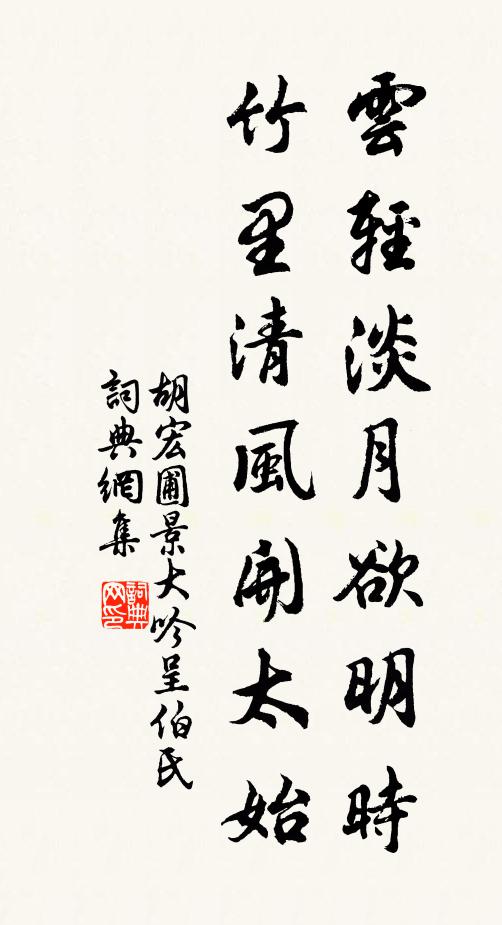 雲輕淡月欲明時
竹里清風開太始
胡宏圃景大吟呈伯氏
詞典網集
詞典网印